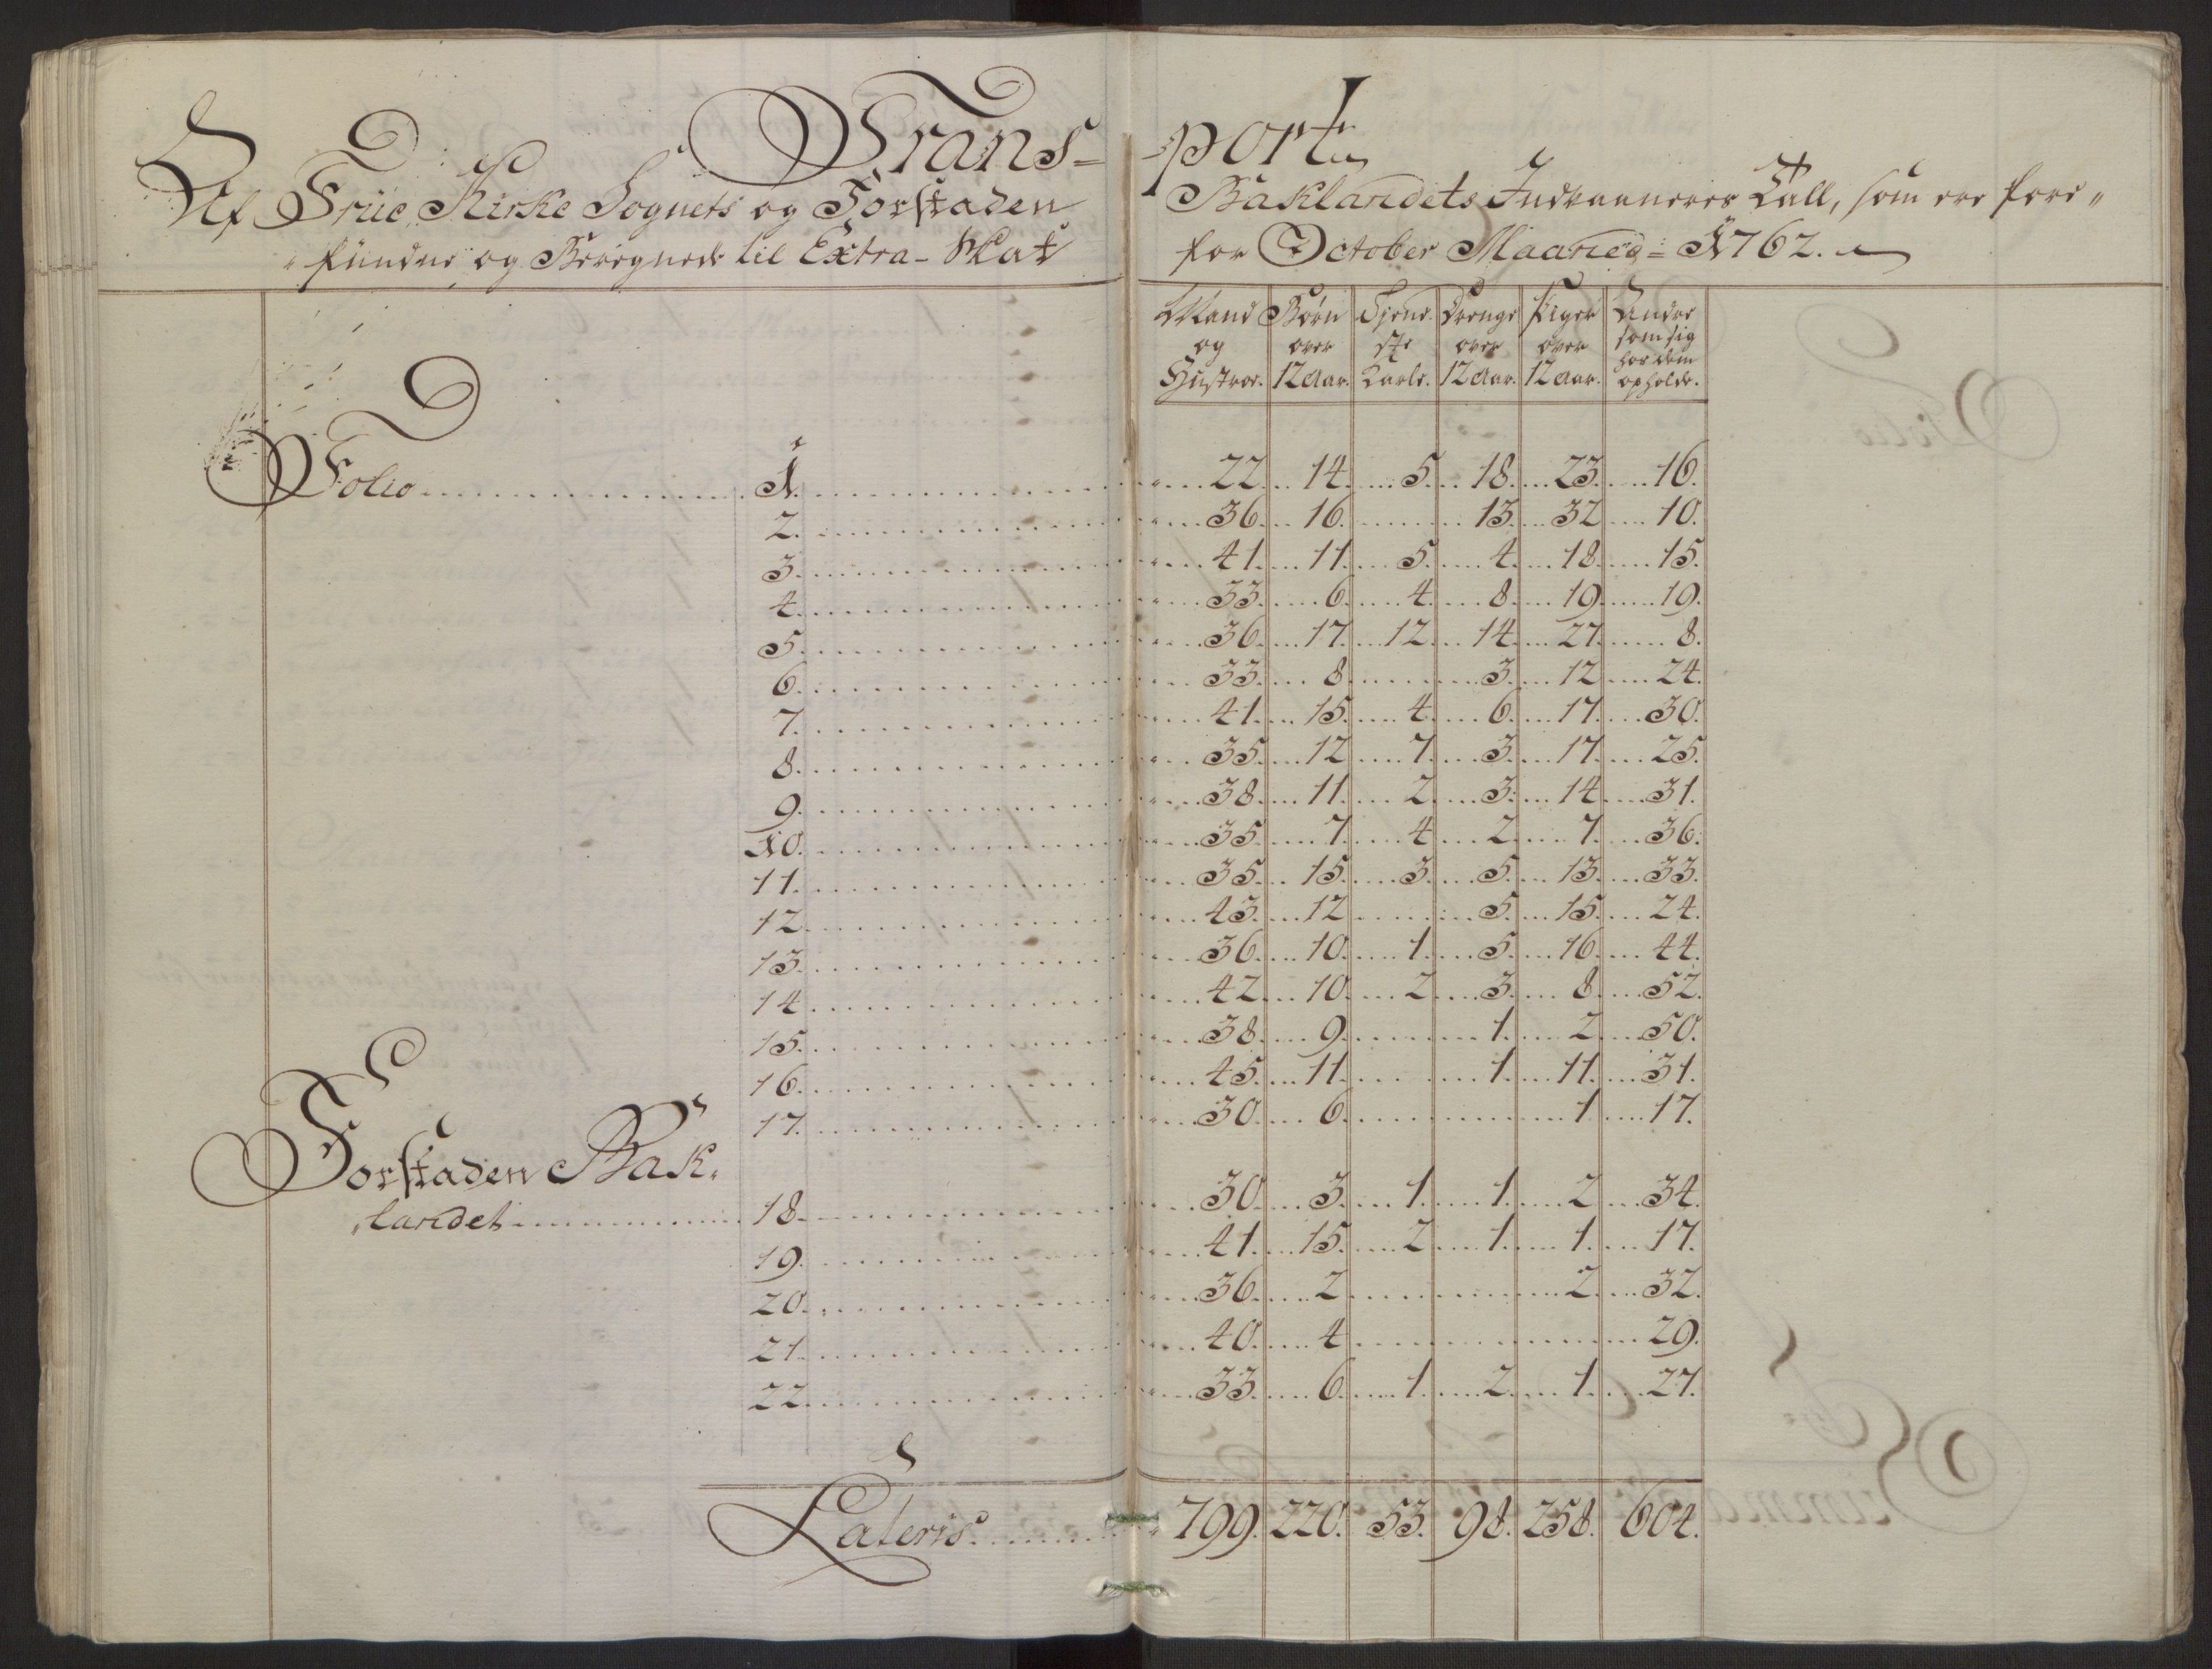 Trans-port
Af Früe Kirke Sognets og Forstaden Baklandets Indvaaneres Tall, som ere fore„
„fundne og Beregnede til Extra-Skat for October Maaned 1762.
Mand og Hustroe. Børn over 12 Aar. Tjene„ste Karle. Drenge over 12 Aar. Piger over 12 Aar. Andre som sig hos dem opholde.
Folio 1. 22. 14. 5. 18. 23. 16.
2. 36. 16. 13. 32 10.
3. 41. 11. 5. 4. 18. 15.
4. 33. 6. 4. 8. 19. 19.
5. 36. 17. 12. 14. 27. 8.
6. 33. 8. 3. 12. 24.
7. 41. 15. 4. 6. 17. 30.
8. 35. 12 7. 3. 17. 25.
9. 38. 11. 2. 3. 14. 31.
10. 35. 7. 4. 2. 7. 36.
11. 35. 15. 3. 5. 13. 33.
12. 43. 12 5. 15. 24.
13. 36. 10. 1. 5. 16. 44.
14. 42. 10. 2. 3. 8. 52.
15. 38. 9. 1. 2. 50.
16. 45. 11. 1. 11. 31.
17. 30. 6. 1. 17.
Forstaden Bak„
„landet 18. 30. 3. 1. 1. 2 34.
19. 41. 15. 2. 1. 1. 17.
20. 36. 2 2. 32.
21. 40. 4 29.
22. 33. 6. 1. 2. 1. 27.
Lateris 799. 220. 53. 98. 258. 604.